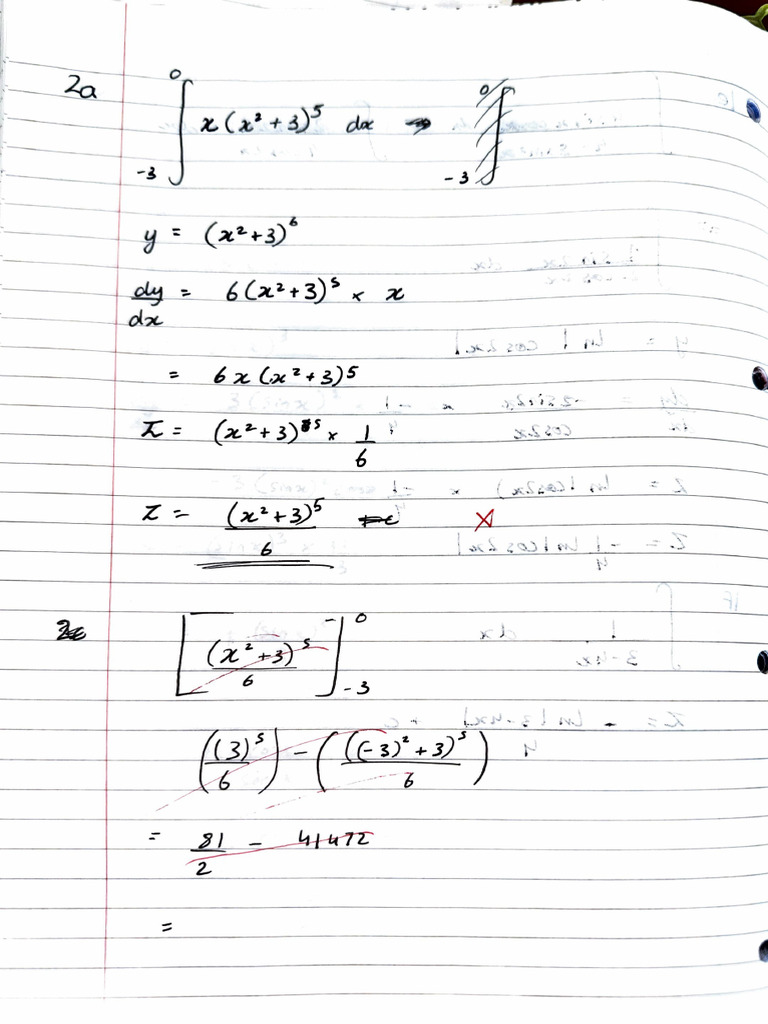 2a ∫₋₃⁰ x(x²+3)⁵ dx → ∫₋₃⁰
y = (x²+3)⁶
dy/dx = 6(x²+3)⁵ × x
= 6x(x²+3)⁵
I = (x²+3)⁵ × 1/6
I = (x²+3)⁵/6
[(x²+3)⁵/6]₋₃⁰
((3)⁵/6) - (((-3)²+3)⁵/6)
= 81/2 - 41472
=